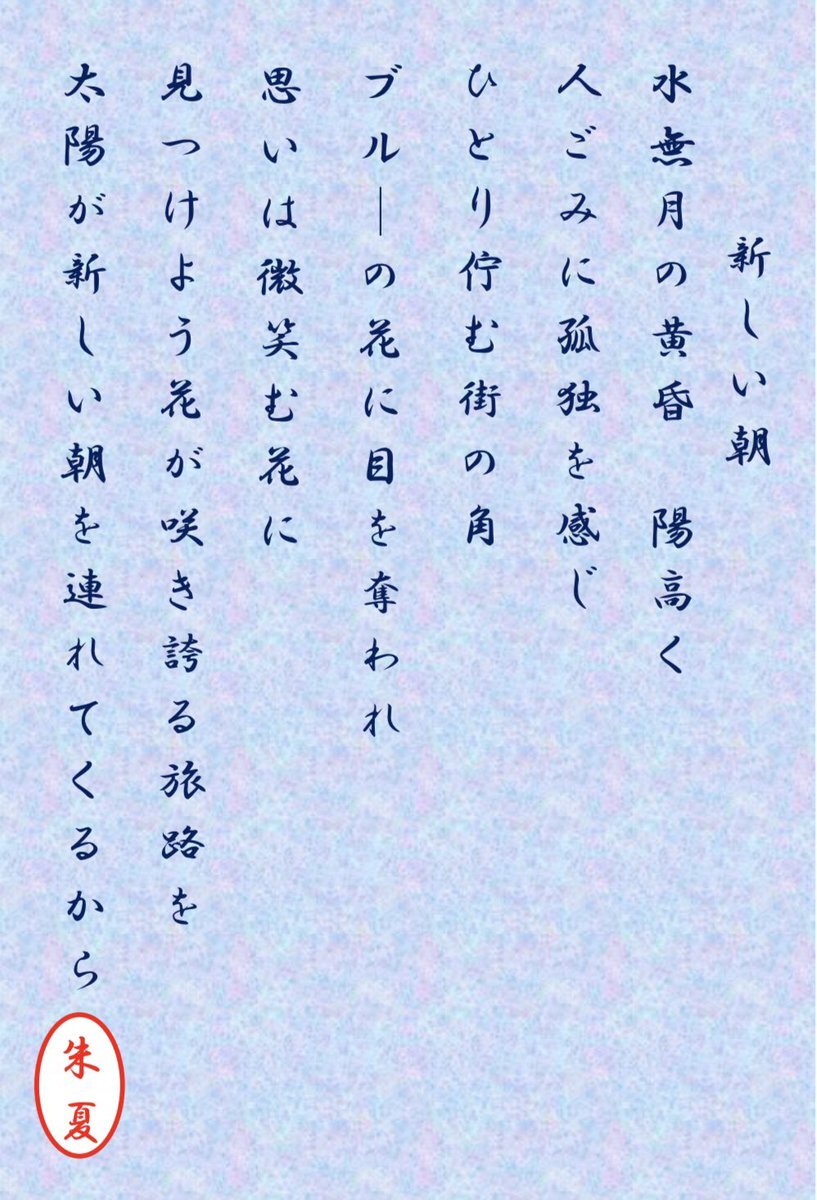 新しい朝
水無月の黄昏　陽高く
人ごみに孤独を感じ
ひとり佇む街の角
ブルーの花に目を奪われ
思いは微笑む花に
見つけよう花が咲き誇る旅路を
太陽が新しい朝を連れてくるから
朱夏